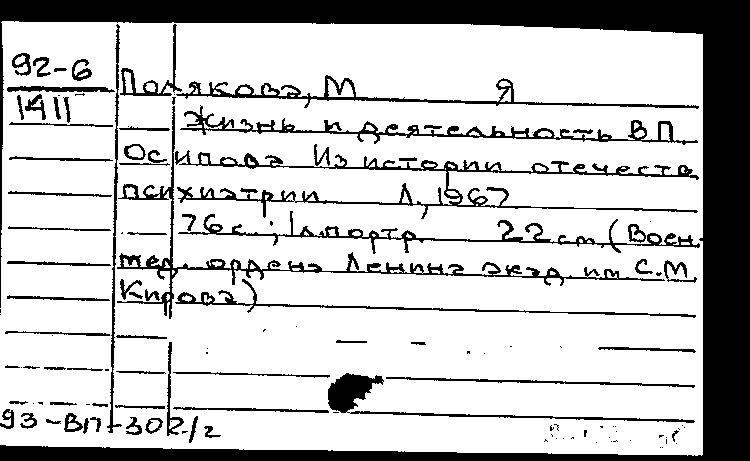 92-6
1411
Полякова, М Я
Жизнь и деятельность В П.
Осипова Из истории отечеств
психиатрии Л., 1967
76 с.; 1 л. портр. 22 см. (Воен.
мед. ордена Ленина акад. им С.М.
Кирова)
93-ВП-302/2